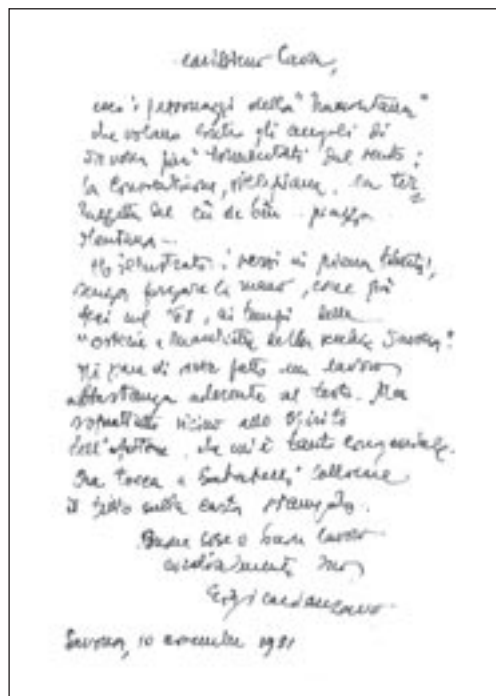 carissimo
ecco i personaggi della "Tramontana"
che volano contro gli angoli di
Savona più tormentati dal vento:
la Consolazione,
del piazza
Mentana
Ho illustrato i versi in piena libertà,
senza forzare la mano, come già
feci nel '68, ai tempi delle
"osterie e della vecchia Savona".
Mi pare di aver fatto un lavoro
abbastanza aderente al testo. Ma
soprattutto vicino allo spirito
dell'Autore, che mi è tanto congeniale.
Ora tocca a Sabatelli collocare
il tutto sulla carta stampata.
Buone cose e buon lavoro
cordialmente tuo

Savona, 10 novembre 1981